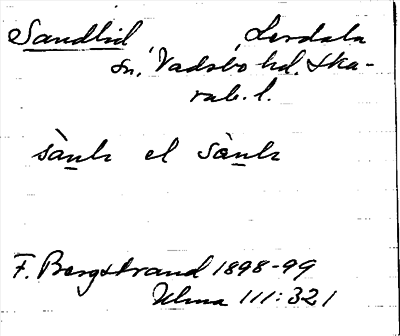 Sandlid Lerdala
sn., Vadsbo hd. Ska-
rab. l.
sànlı el sànlı
F. Bergstrand 1898-99
Ulma 111:321